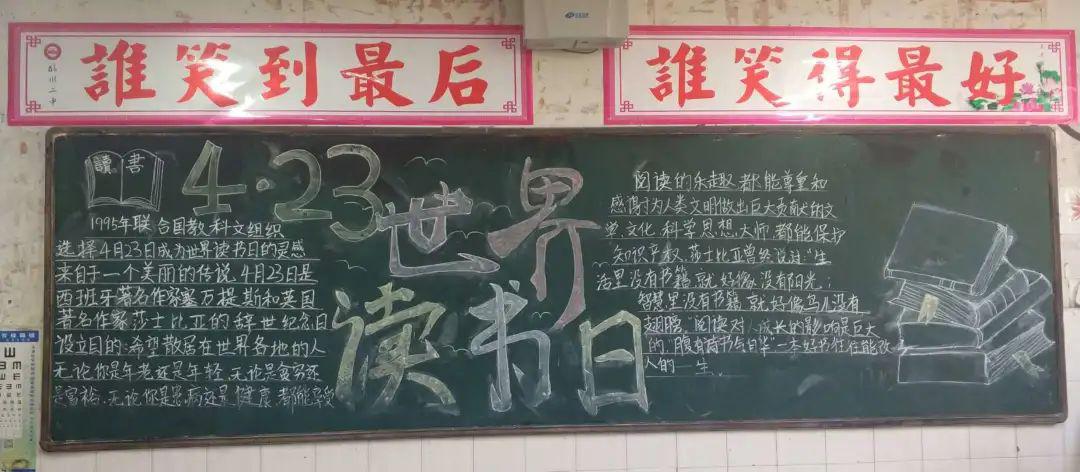 誰笑到最后
誰笑得最好
讀書
4·23
世界
读书日
1995年联合国教科文组织
选择4月23日成为世界读书日的灵感
来自于一个美丽的传说.4月23日是
西班牙著名作家塞万提斯和英国
著名作家莎士比亚的辞世纪念日
设立目的:希望散居在世界各地的人
无论你是年老还是年轻,无论是贫穷还
是富裕,无论你是患病还是健康,都能享受
阅读的乐趣,都能尊重和
感谢为人类文明做出巨大贡献的文
学,文化,科学思想大师,都能保护
知识产权,莎士比亚曾经说过:"生
活里没有书籍,就好像没有阳光;
智慧里没有书籍,就好像鸟儿没有
翅膀."阅读对人成长的影响是巨大
的,"腹有诗书气自华"一本好书往往能改
人的一生.